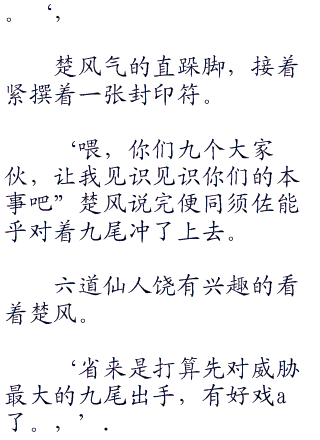 。‘，
楚风气的直跺脚，接着
紧撰着一张封印符。
‘喂，你们九个大家
伙，让我见识见识你们的本
事吧”楚风说完便同须佐能
乎对着九尾冲了上去。
六道仙人饶有兴趣的看
着楚风。
‘省来是打算先对威胁
最大的九尾出手，有好戏a
了。，’．